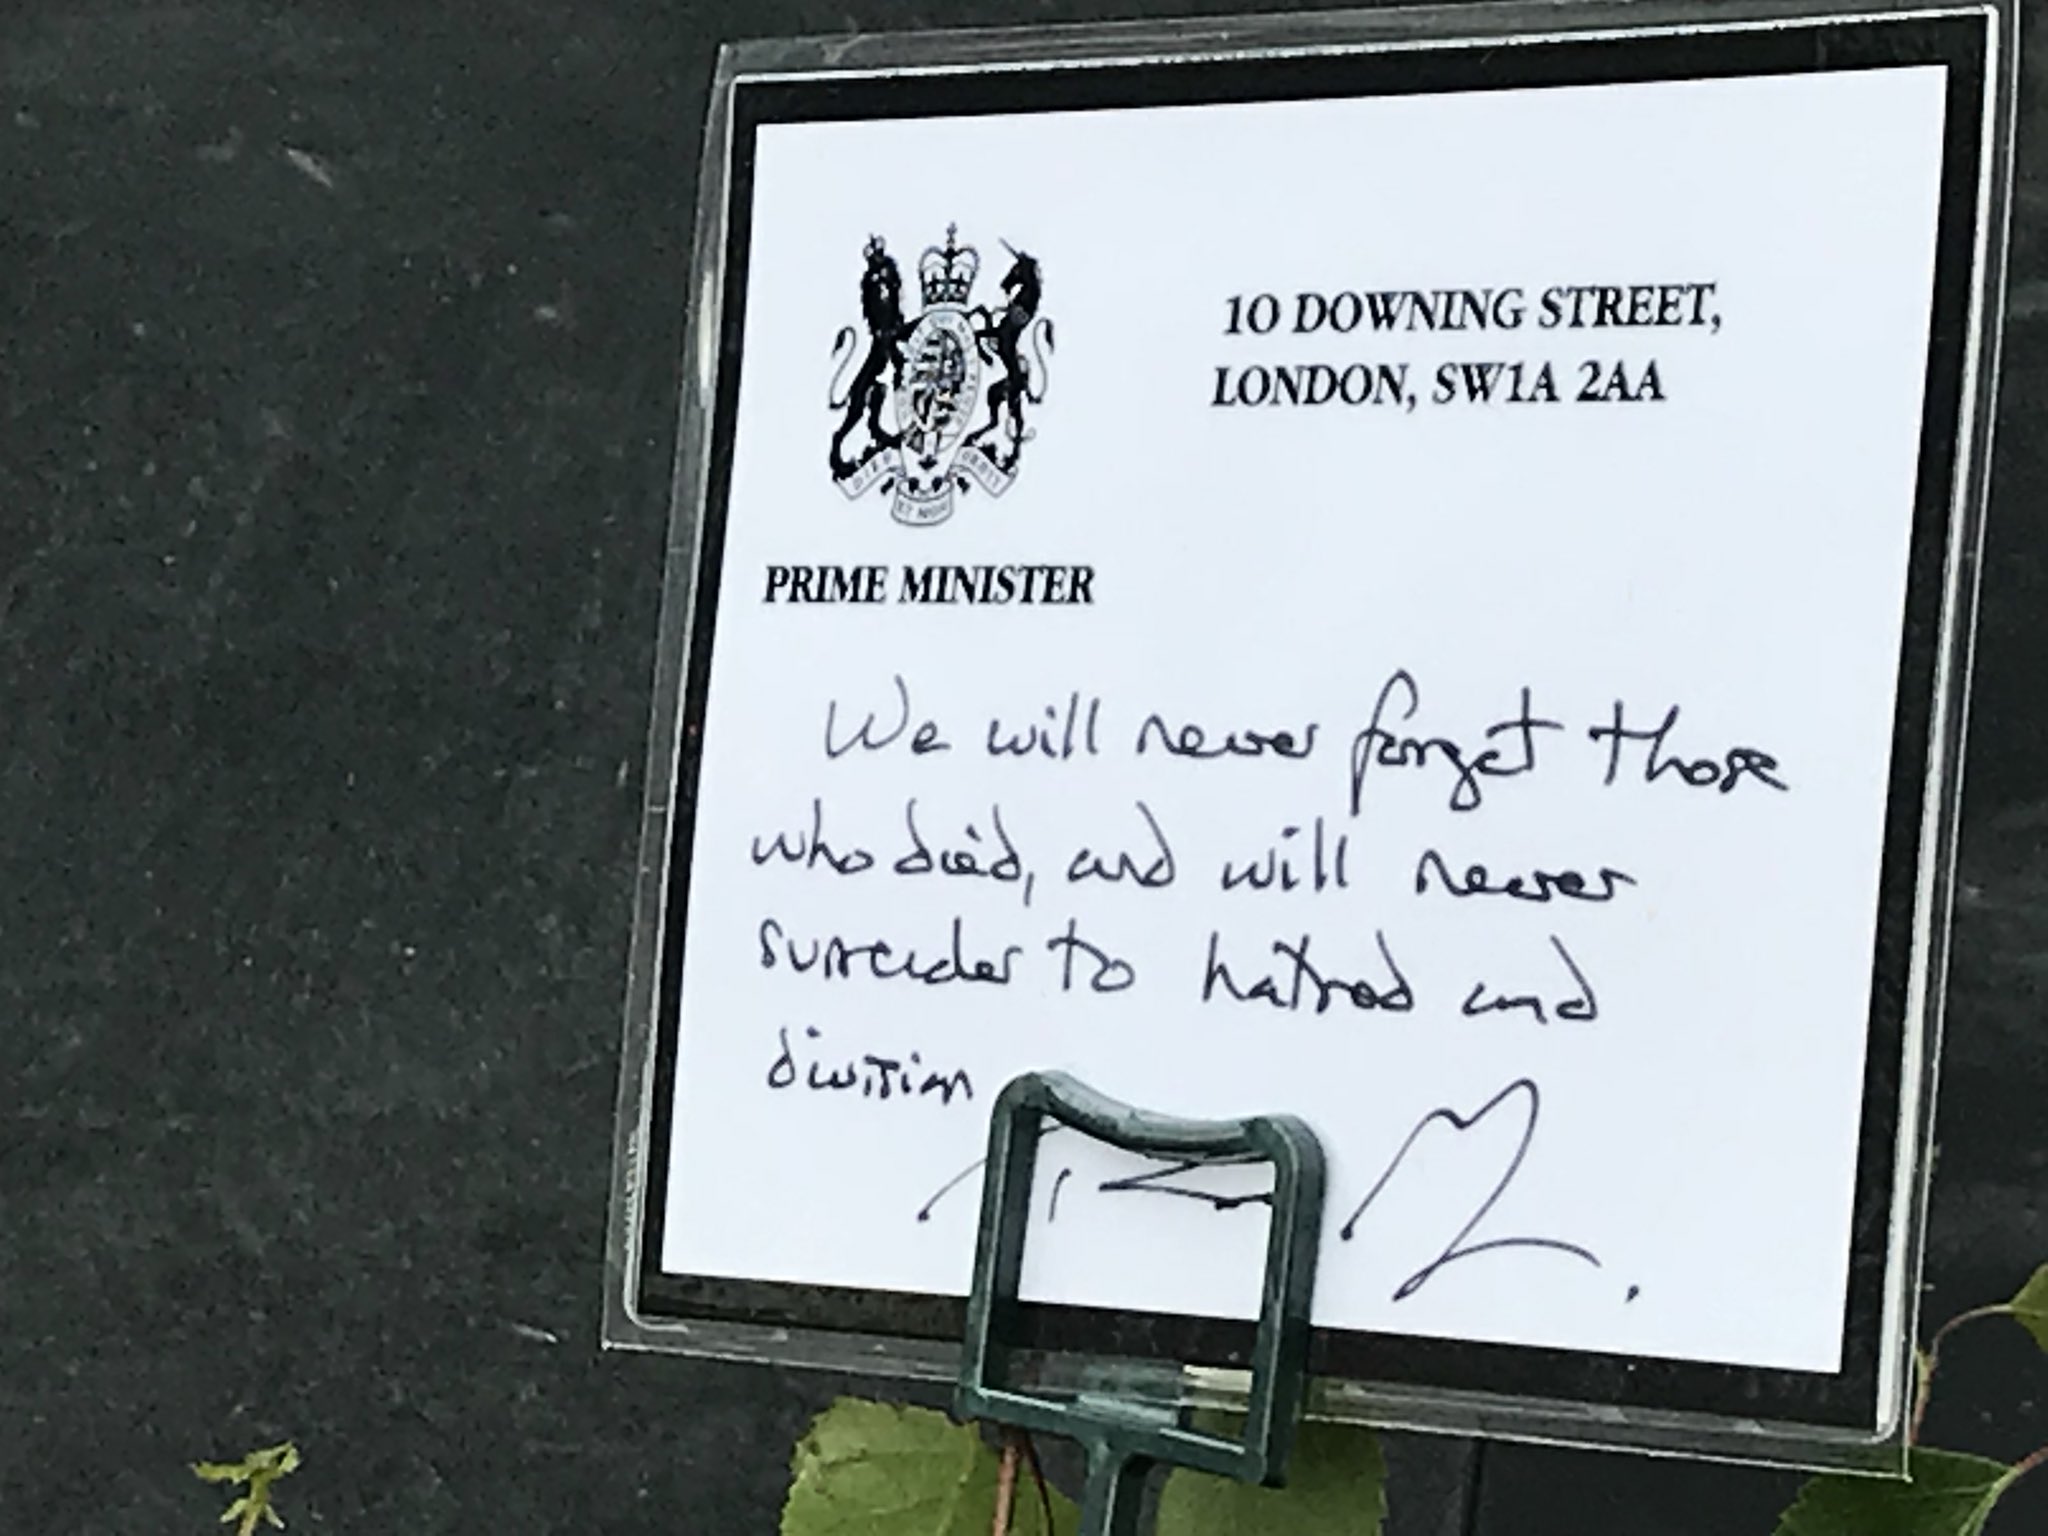 10 DOWNING STREET,
LONDON, SW1A 2AA
PRIME MINISTER
We will never forget those
who died, and will never
surrender to hatred and
division